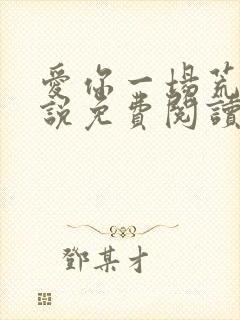 愛你一場荒
說免費閱讀
鄧某才